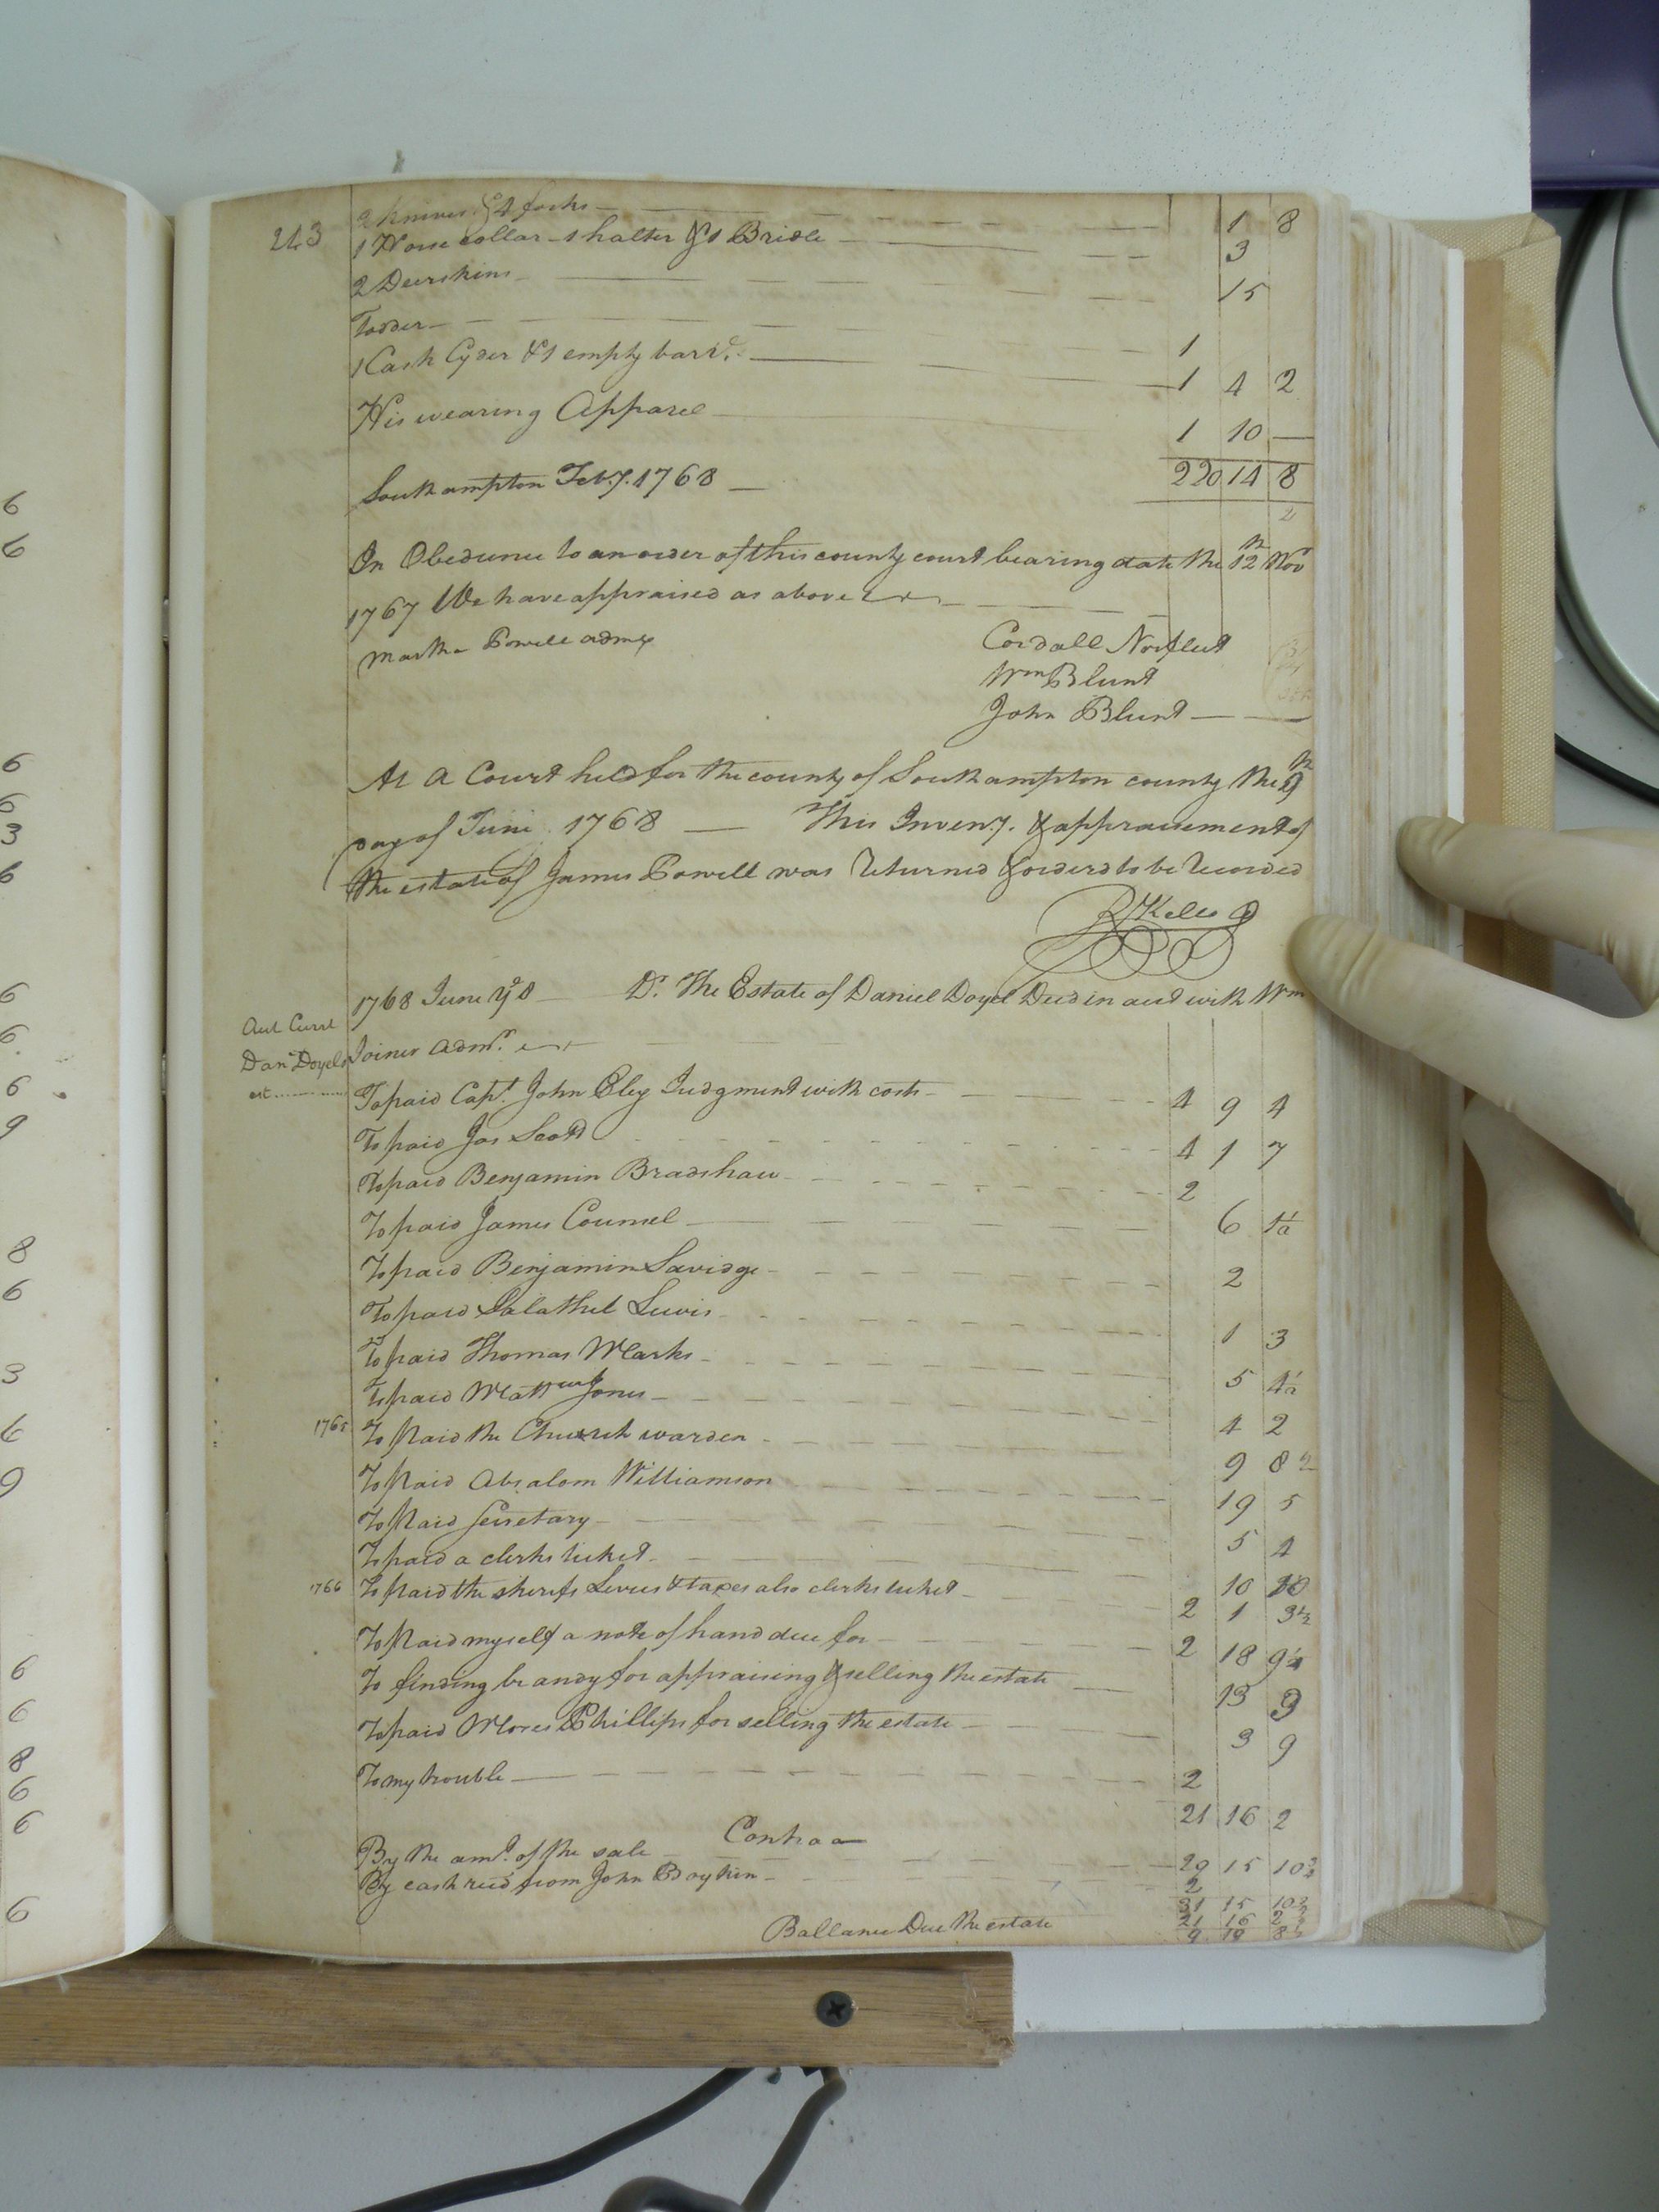 243
2 knives & 4 forks 1 8
1 Horse collar 1 halter & 1 Bridle 3
2 Deerskins 15
Fodder 1
1 Cask Cyder & 1 empty barrl. 1 4 2
His wearing Apparel 1 10 —
Southampton Feby. 1768 220 14 8
In Obedience to an order of this county court bearing date the 12th Nov
1767 We have appraised as above
Martha Powell admx
Cordall Norfleet
Wm Blunt
John Blunt
At a Court held for the county of Southampton county the 9th
Day of June 1768 — This Inveny. & appraisement of
the estate of James Powell was Returned & orderd to be Recorded
R Kello
1768 June ye 8 Dr. The Estate of Daniel Doyel Decd in acct with Wm
Joiner admr.
Acct Curst
Danl Doyels
est
To paid Capt. John Eley Judgment with costs 4 9 4
To paid Jas Scott 4 1 7
To paid Benjamin Bradshaw 2
To paid James Counsel 6
To paid Benjamin Savidge 2
To paid Salathel Lewis 1 3
To paid Thomas Marks 5
To paid Matthew Jones 4 2
1765 To paid the Church warden 9 8
To paid Absalom Williamson 19 5
To paid Secretary 5 4
To paid a clerks ticket 10
1766 To paid the sherifs Levies & taxes also clerks ticket 2 1 3½
To paid myself a note of hand due for 2 18
To finding brandy for appraising & selling the estate 13 9
To paid Moses Phillips for selling the estate 3 9
To my trouble 2
21 16 2
Contra
By the amt. of the sale 29 15 10¾
By cash recd from John Boykin 2
31 15 10¾
21 16 2
Ballance Due the estate 9 19 8